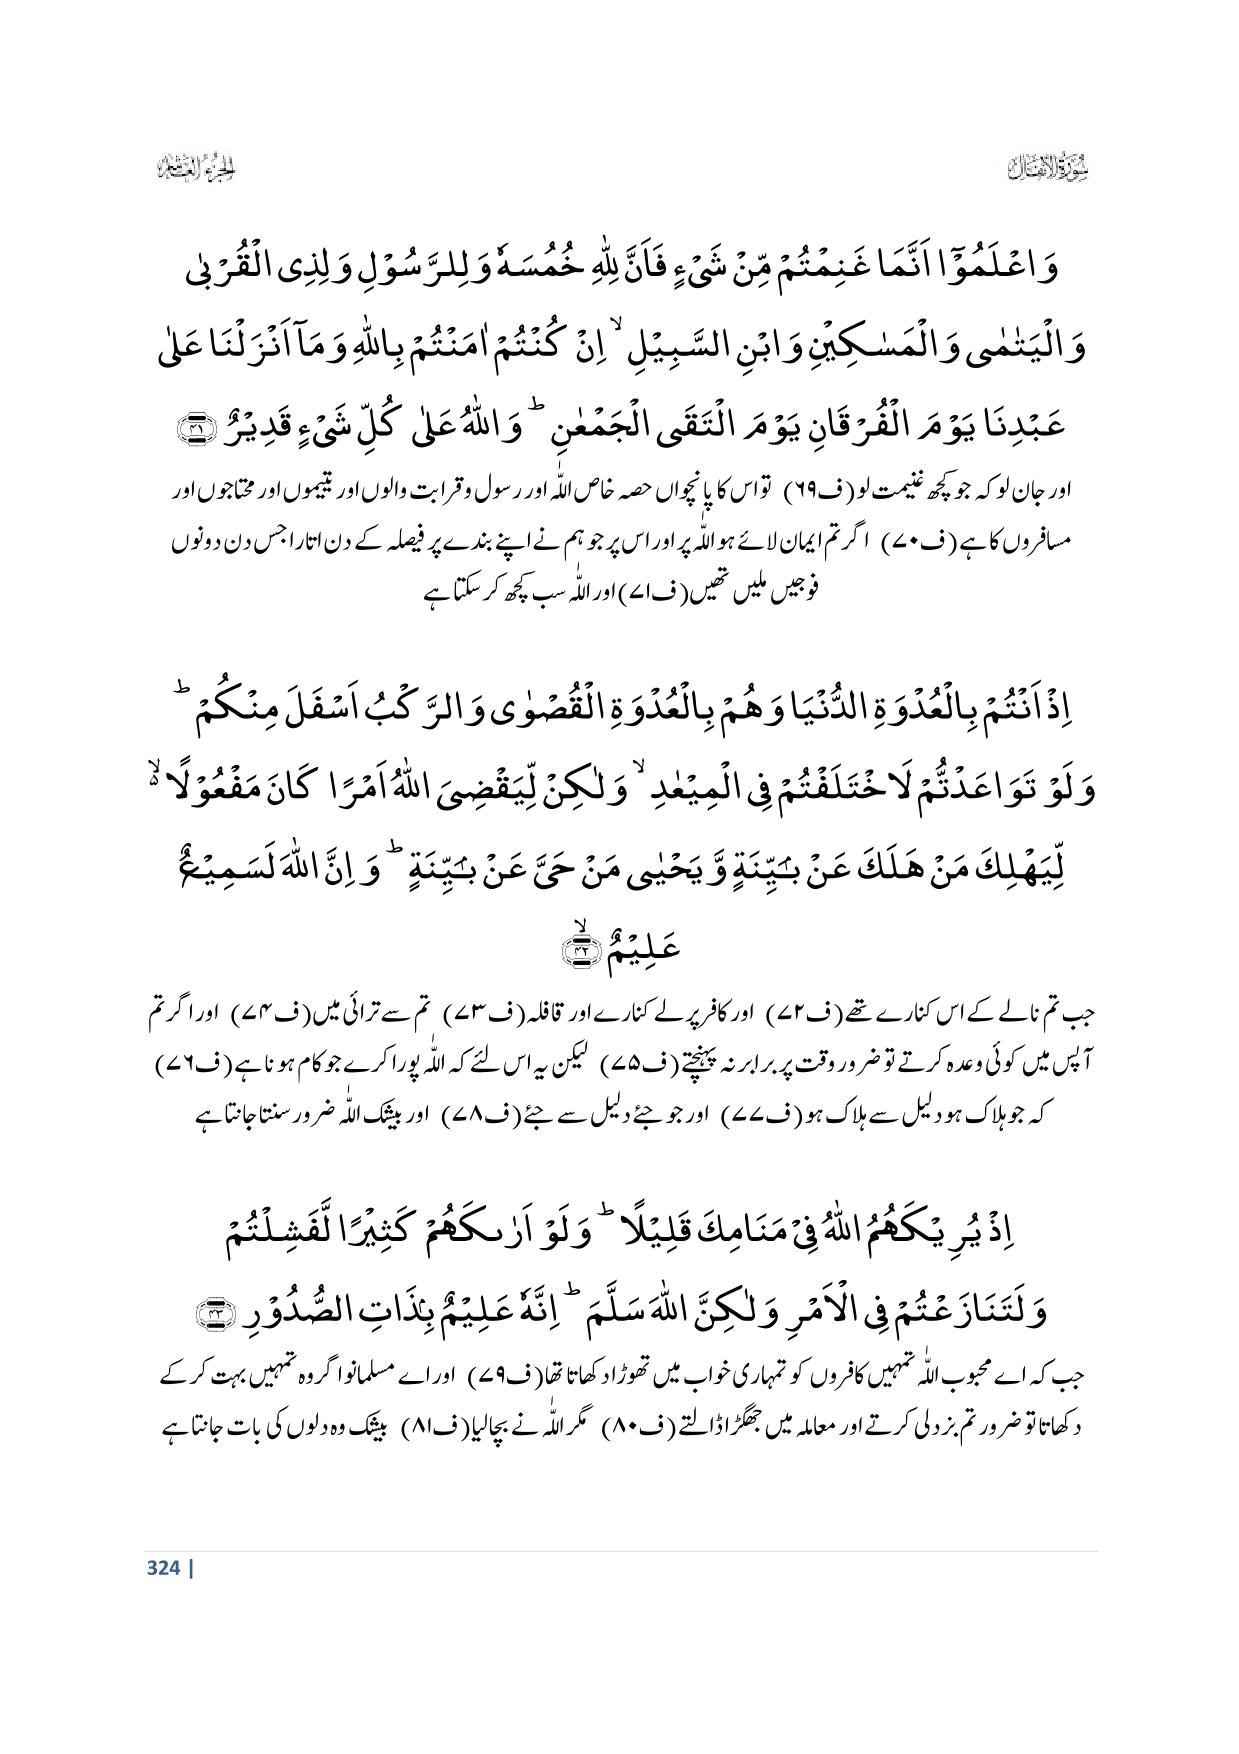 سُوْرَةُ الْاَنْفَال
الجزء العاشر
وَاعْلَمُوْۤا اَنَّمَا غَنِمْتُمْ مِّنْ شَیْءٍ فَاَنَّ لِلّٰهِ خُمُسَهٗ وَلِلرَّسُوْلِ وَلِذِی الْقُرْبٰی
وَالْیَتٰمٰی وَالْمَسٰکِیْنِ وَابْنِ السَّبِیْلِ ۙ اِنْ کُنْتُمْ اٰمَنْتُمْ بِاللّٰهِ وَمَاۤ اَنْزَلْنَا عَلٰی
عَبْدِنَا یَوْمَ الْفُرْقَانِ یَوْمَ الْتَقَی الْجَمْعٰنِ ؕ وَاللّٰهُ عَلٰی کُلِّ شَیْءٍ قَدِیْرٌ ﴿۴۱﴾
اور جان لو کہ جو کچھ غنیمت لو (ف۶۹) تو اس کا پانچواں حصہ خاص اللّٰہ اور رسول و قرابت والوں اور یتیموں اور محتاجوں اور
مسافروں کا ہے (ف۷۰) اگر تم ایمان لائے ہو اللّٰہ پر اور اس پر جو ہم نے اپنے بندے پر فیصلہ کے دن اتارا جس دن دونوں
فوجیں ملیں تھیں (ف۷۱) اور اللّٰہ سب کچھ کر سکتا ہے
اِذْ اَنْتُمْ بِالْعُدْوَةِ الدُّنْیَا وَهُمْ بِالْعُدْوَةِ الْقُصْوٰی وَالرَّکْبُ اَسْفَلَ مِنْکُمْ ؕ
وَلَوْ تَوَاعَدْتُّمْ لَاخْتَلَفْتُمْ فِی الْمِیْعٰدِ ۙ وَلٰکِنْ لِّیَقْضِیَ اللّٰهُ اَمْرًا کَانَ مَفْعُوْلًا ۬ۙ
لِّیَهْلِكَ مَنْ هَلَكَ عَنْۢ بَیِّنَةٍ وَّیَحْیٰی مَنْ حَیَّ عَنْۢ بَیِّنَةٍ ؕ وَاِنَّ اللّٰهَ لَسَمِیْعٌ
عَلِیْمٌ ﴿ۙ۴۲﴾
جب تم نالے کے اس کنارے تھے (ف۷۲) اور کافر پرلے کنارے اور قافلہ (ف۷۳) تم سے ترائی میں (ف۷۴) اور اگر تم
آپس میں کوئی وعدہ کرتے تو ضرور وقت پر برابر نہ پہنچتے (ف۷۵) لیکن یہ اس لئے کہ اللّٰہ پورا کرے جو کام ہونا ہے (ف۷۶)
کہ جو ہلاک ہو دلیل سے ہلاک ہو (ف۷۷) اور جو جئے دلیل سے جئے (ف۷۸) اور بیشک اللّٰہ ضرور سنتا جانتا ہے
اِذْ یُرِیْکَهُمُ اللّٰهُ فِیْ مَنَامِكَ قَلِیْلًا ؕ وَلَوْ اَرٰىکَهُمْ کَثِیْرًا لَّفَشِلْتُمْ
وَلَتَنَازَعْتُمْ فِی الْاَمْرِ وَلٰکِنَّ اللّٰهَ سَلَّمَ ؕ اِنَّهٗ عَلِیْمٌۢ بِذَاتِ الصُّدُوْرِ ﴿۴۳﴾
جب کہ اے محبوب اللّٰہ تمہیں کافروں کو تمہاری خواب میں تھوڑا دکھاتا تھا (ف۷۹) اور اے مسلمانو اگر وہ تمہیں بہت کر کے
دکھاتا تو ضرور تم بزدلی کرتے اور معاملہ میں جھگڑا ڈالتے (ف۸۰) مگر اللّٰہ نے بچا لیا (ف۸۱) بیشک وہ دلوں کی بات جانتا ہے
324 |